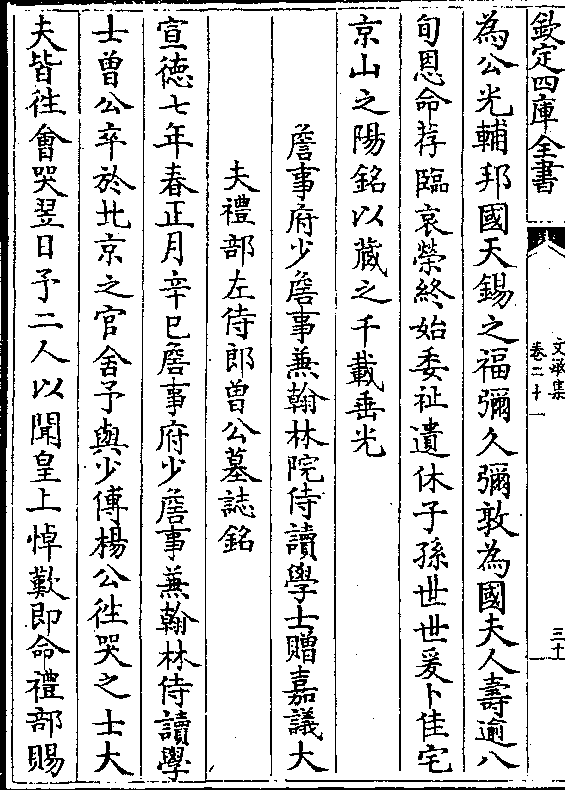 欽定四庫全書
文敏集
卷二十一
三十
為公光輔邦國天錫之福彌久彌敦為國夫人壽逾八
旬恩命荐臨哀榮終始委祉遺休子孫世世爰卜佳宅
京山之陽銘以蔵之千載垂光
詹事府少詹事兼翰林院侍讀學士贈嘉議大
夫禮部左侍郎曽公墓誌銘
宣徳七年春正月辛巳詹事府少詹事兼翰林侍讀學
士曽公卒於北京之官舍予與少傅楊公徃哭之士大
夫皆徃會哭翌日予二人以聞皇上悼歎即命禮部賜